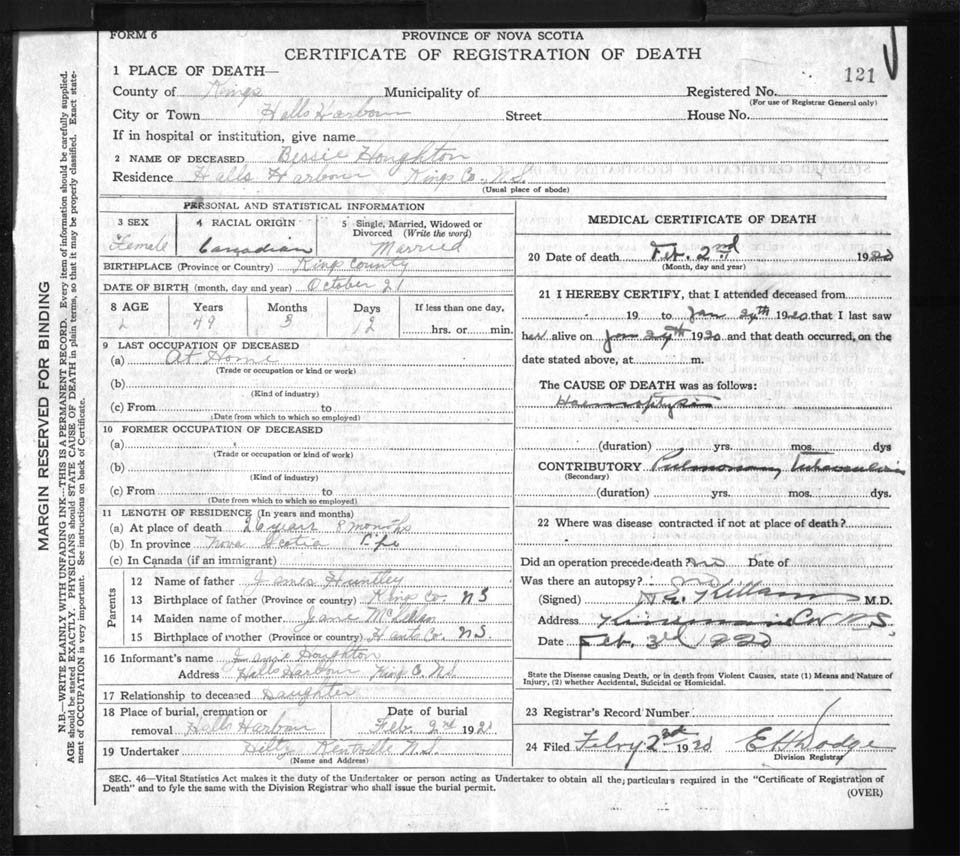 FORM 6
PROVINCE OF NOVA SCOTIA
CERTIFICATE OF REGISTRATION OF DEATH
121
1 PLACE OF DEATH—
County of Kings Municipality of Registered No.
(For use of Registrar General only)
City or Town Halls Harbour Street House No.
If in hospital or institution, give name
2 NAME OF DECEASED Bessie Houghton
Residence Halls Harbour Kings Co. N.S.
(Usual place of abode)
PERSONAL AND STATISTICAL INFORMATION
3 SEX Female
4 RACIAL ORIGIN Canadian
5 Single, Married, Widowed or Divorced (Write the word) Married
BIRTHPLACE (Province or Country) Kings County
DATE OF BIRTH (month, day and year) October 21
8 AGE Years Months Days If less than one day,
49 3 12 hrs. or min.
9 LAST OCCUPATION OF DECEASED
(a) At Home
(Trade or occupation or kind or work)
(b)
(Kind of industry)
(c) From to
(Date from which to which so employed)
10 FORMER OCCUPATION OF DECEASED
(a)
(Trade or occupation or kind of work)
(b)
(Kind of industry)
(c) From to
(Date from which to which so employed)
11 LENGTH OF RESIDENCE (In years and months)
(a) At place of death 26 years 8 months
(b) In province Nova Scotia Life
(c) In Canada (if an immigrant)
Parents
12 Name of father James Huntley
13 Birthplace of father (Province or country) Kings Co. NS
14 Maiden name of mother Jane
15 Birthplace of mother (Province or country) Hants Co. NS
16 Informant's name Houghton
Address Halls Harbour Kings Co N.S.
17 Relationship to deceased Daughter
18 Place of burial, cremation or removal Halls Harbour
Date of burial Feb. 2nd 192
19 Undertaker Hiltz Kentville N.S.
(Name and Address)
MEDICAL CERTIFICATE OF DEATH
20 Date of death Feb. 2nd 1920
(Month, day and year)
21 I HEREBY CERTIFY, that I attended deceased from
19 to Jan 29th 1920 that I last saw
her alive on Jan 29th 1920 and that death occurred, on the
date stated above, at m.
The CAUSE OF DEATH was as follows:
Haemoptysis
(duration) yrs. mos. dys
CONTRIBUTORY Pulmonary Tuberculosis
(Secondary)
(duration) yrs. mos. dys.
22 Where was disease contracted if not at place of death?
Did an operation precede death? no Date of
Was there an autopsy? no
(Signed) Killam M.D.
Address N.S.
Date Feb. 3rd 1920
State the Disease causing Death, or in death from Violent Causes, state (1) Means and Nature of
Injury, (2) whether Accidental, Suicidal or Homicidal.
23 Registrar's Record Number
24 Filed Febry 2nd 1920 E H Dodge
Division Registrar
SEC. 46—Vital Statistics Act makes it the duty of the Undertaker or person acting as Undertaker to obtain all the particulars required in the "Certificate of Registration of
Death" and to fyle the same with the Division Registrar who shall issue the burial permit.
(OVER)
MARGIN RESERVED FOR BINDING
N.B.—WRITE PLAINLY WITH UNFADING INK—THIS IS A PERMANENT RECORD. Every item of information should be carefully supplied.
AGE should be stated EXACTLY. PHYSICIANS should STATE CAUSE OF DEATH in plain terms, so that it may be properly classified. Exact statement
of OCCUPATION is very important. See instructions on back of Certificate.